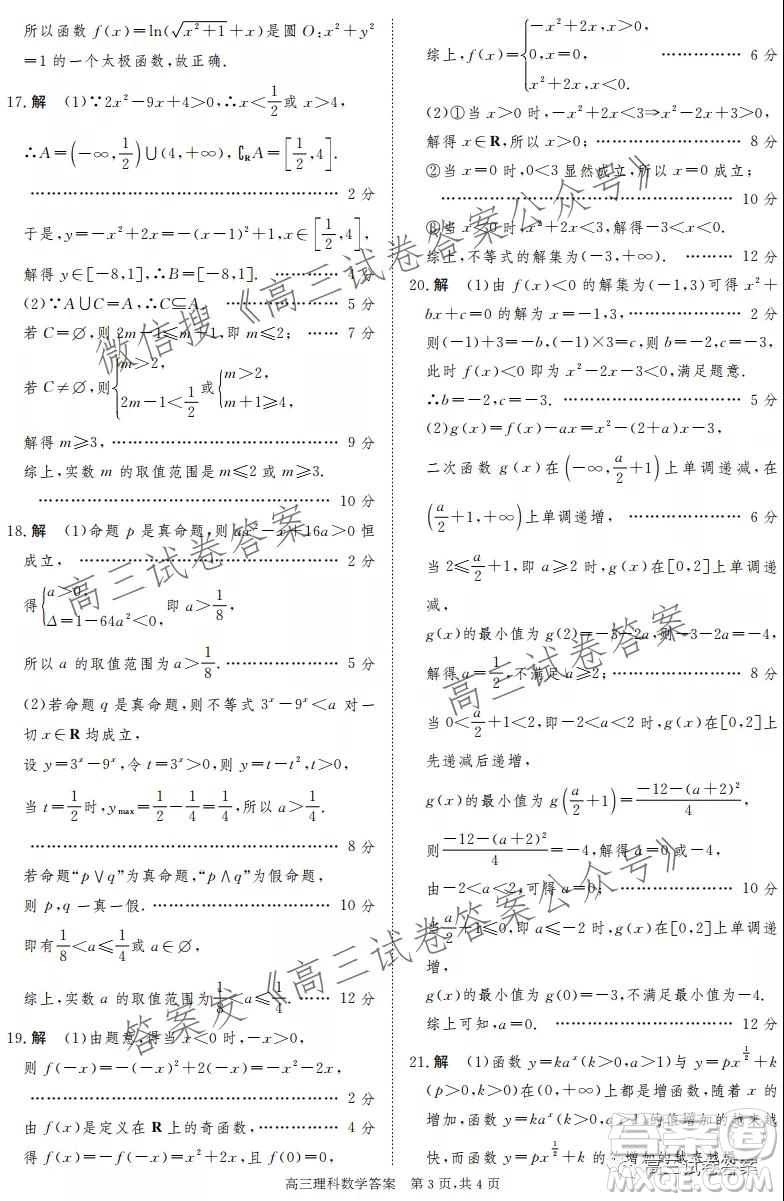 所以函数 f(x)=ln(√(x²+1)+x)是圆 O:x²+y²
=1 的一个太极函数,故正确.
17. 解 (1)∵2x²-9x+4>0,∴x<1/2或 x>4,
∴A=(-∞,1/2)∪(4,+∞),∁RA=[1/2,4].
…………………………………………… 2 分
于是,y=-x²+2x=-(x-1)²+1,x∈[1/2,4],
解得 y∈[-8,1],∴B=[-8,1]. ………… 4 分
(2)∵A∪C=A,∴C⊆A. ……………… 5 分
若 C=∅,则 2m-1≤m+1,即 m≤2; …… 7 分
若 C≠∅,则{m>2, 2m-1<1/2 或{m>2, m+1≥4,
解得 m≥3, ……………………………… 9 分
综上,实数 m 的取值范围是 m≤2 或 m≥3.
…………………………………………… 10 分
18. 解 (1)命题 p 是真命题,则 ax²-x+16a>0 恒
成立, …………………………………… 2 分
得{a>0, Δ=1-64a²<0, 即 a>1/8,
所以 a 的取值范围为 a>1/8. …………… 5 分
(2)若命题 q 是真命题,则不等式 3ˣ-9ˣ<a 对一
切 x∈R 均成立,
设 y=3ˣ-9ˣ,令 t=3ˣ>0,则 y=t-t²,t>0,
当 t=1/2时,ymax=1/2-1/4=1/4,所以 a>1/4.
…………………………………………… 8 分
若命题“p∨q”为真命题,“p∧q”为假命题,
则 p,q 一真一假. ……………………… 10 分
即有1/8<a≤1/4或 a∈∅,
综上,实数 a 的取值范围为1/8<a≤1/4. …… 12 分
19. 解 (1)由题意,得当 x<0 时,-x>0,
则 f(-x)=-(-x)²+2(-x)=-x²-2x,
…………………………………………… 2 分
由 f(x)是定义在 R 上的奇函数, ……… 4 分
得 f(x)=-f(-x)=x²+2x,且 f(0)=0,
综上,f(x)={-x²+2x,x>0, 0,x=0, x²+2x,x<0. …………… 6 分
(2)①当 x>0 时,-x²+2x<3⇒x²-2x+3>0,
解得 x∈R,所以 x>0; ………………… 8 分
②当 x=0 时,0<3 显然成立,所以 x=0 成立;
…………………………………………… 10 分
③当 x<0 时,x²+2x<3,解得-3<x<0.
综上,不等式的解集为(-3,+∞). …… 12 分
20. 解 (1)由 f(x)<0 的解集为(-1,3)可得 x²+
bx+c=0 的解为 x=-1,3, …………… 2 分
则(-1)+3=-b,(-1)×3=c,则 b=-2,c=-3,
此时 f(x)<0 即为 x²-2x-3<0,满足题意.
∴b=-2,c=-3. ………………………… 5 分
(2)g(x)=f(x)-ax=x²-(2+a)x-3,
二次函数 g(x)在(-∞,a/2+1)上单调递减,在
(a/2+1,+∞)上单调递增, ……………… 6 分
当 2≤a/2+1,即 a≥2 时,g(x)在[0,2]上单调递
减,
g(x)的最小值为 g(2)=-3-2a,则-3-2a=-4,
解得 a=1/2,不满足 a≥2; ……………… 8 分
当 0<a/2+1<2,即-2<a<2 时,g(x)在[0,2]上
先递减后递增,
g(x)的最小值为 g(a/2+1)=(-12-(a+2)²)/4,
则(-12-(a+2)²)/4=-4,解得 a=0 或-4,
由-2<a<2,可得 a=0; ……………… 10 分
当a/2+1≤0,即 a≤-2 时,g(x)在[0,2]上单调递
增,
g(x)的最小值为 g(0)=-3,不满足最小值为-4.
综上可知,a=0. ………………………… 12 分
21. 解 (1)函数 y=kaˣ(k>0,a>1)与 y=px^(1/2)+k
(p>0,k>0)在(0,+∞)上都是增函数,随着 x 的
增加,函数 y=kaˣ(k>0,a>1)的值增加的越来越
快,而函数 y=px^(1/2)+k 的值增加的越来越慢.
高三理科数学答案 第 3 页,共 4 页
微信搜《高三试卷答案公众号》
高三试卷答案
高三试卷答案
答案发《高三试卷答案公众号》
高三试卷答案